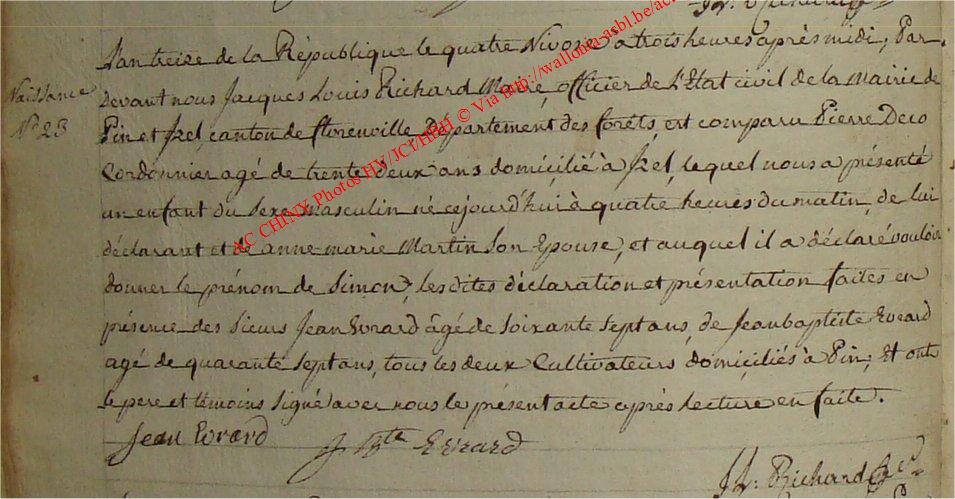 Naissance
N° 23
L'an treize de la République le quatre Nivose a trois heures après midi, Par-
devant nous Jacques Louis Richard Maire, officier de L'Etat civil de la Mairie de
Pin et Izel, canton de florenville, Département des forêts, est comparu Pierre Deco
Cordonnier agé de trente deux ans domicilié à Izel, lequel nous a présenté
un enfant du sexe masculin né cejourd'hui à quatre heures du matin, de lui
déclarant et de anne-marie Martin son Epouse, et auquel il a déclaré vouloir
donner le prénom de Simon, les dites déclaration et présentation faites en
présence des Sieurs Jean Evrard âgé de soixante sept ans, de Jean baptiste Evrard
agé de quarante sept ans, tous les deux Cultivateurs domiciliés à Pin, Et ont
le pere et témoins signé avec nous le présent acte après lecture en faite.
Jean Evrard
J Bte Evrard
JL. Richard
AC CHINY Photos HV/JCT/HHH © Via http://wallonia-asbl.be/ac